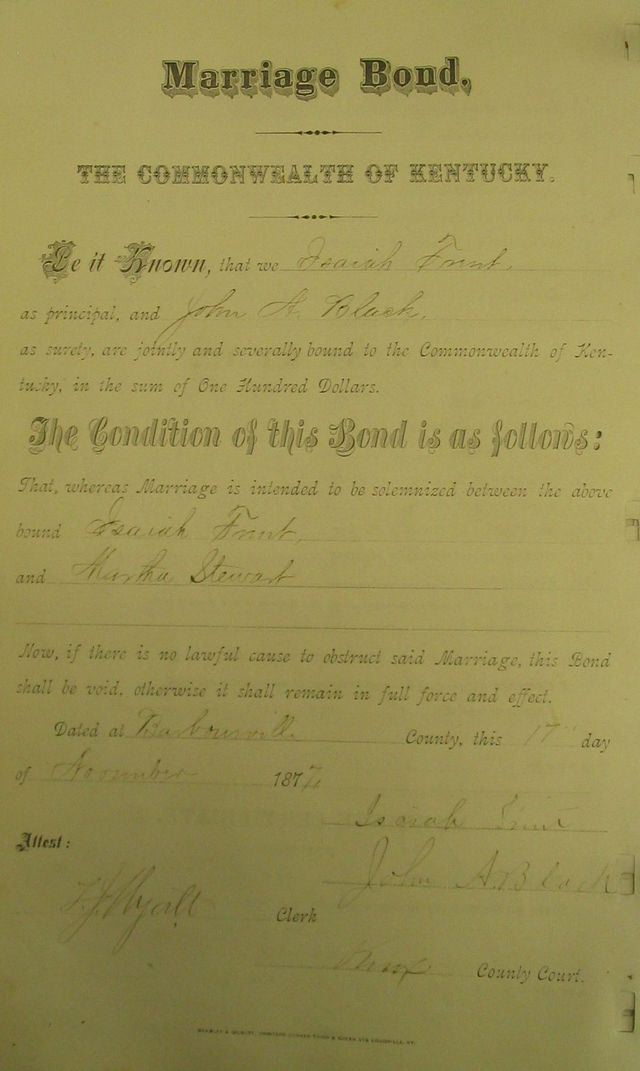 Marriage Bond.
THE COMMONWEALTH OF KENTUCKY.
Be it Known, that we Isaiah
as principal, and John A. Black,
as surety, are jointly and severally bound to the Commonwealth of Ken-
tucky, in the sum of One Hundred Dollars.
The Condition of this Bond is as follows:
That, whereas Marriage is intended to be solemnized between the above
bound Isaiah
and Martha Stewart
Now, if there is no lawful cause to obstruct said Marriage, this Bond
shall be void, otherwise it shall remain in full force and effect.
Dated at Barbourville County, this 17 day
of November 187
Isaiah
Attest:
John A. Black
Clerk
Knox County Court.